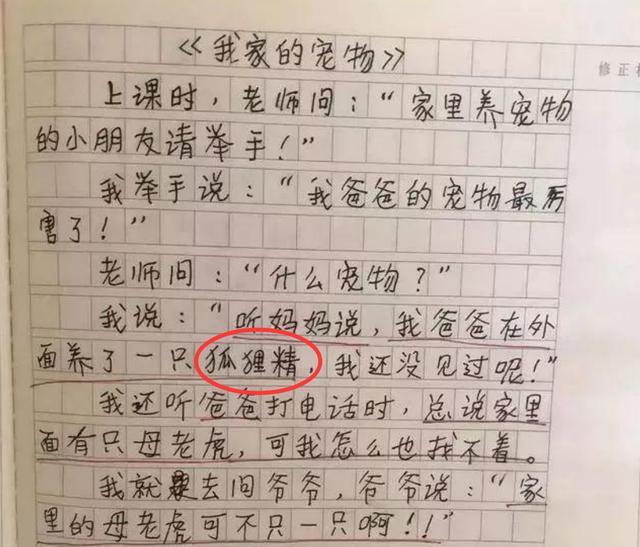 《我家的宠物》
上课时，老师问：“家里养宠物
的小朋友请举手！”
我举手说：“我爸爸的宠物最厉
害了！”
老师问：“什么宠物？”
我说：“听妈妈说，我爸爸在外
面养了一只狐狸精，我还没见过呢！”
我还听爸爸打电话时，总说家里
面有只母老虎，可我怎么也找不着。
我就去问爷爷，爷爷说：“家
里的母老虎可不只一只啊！！”
修正